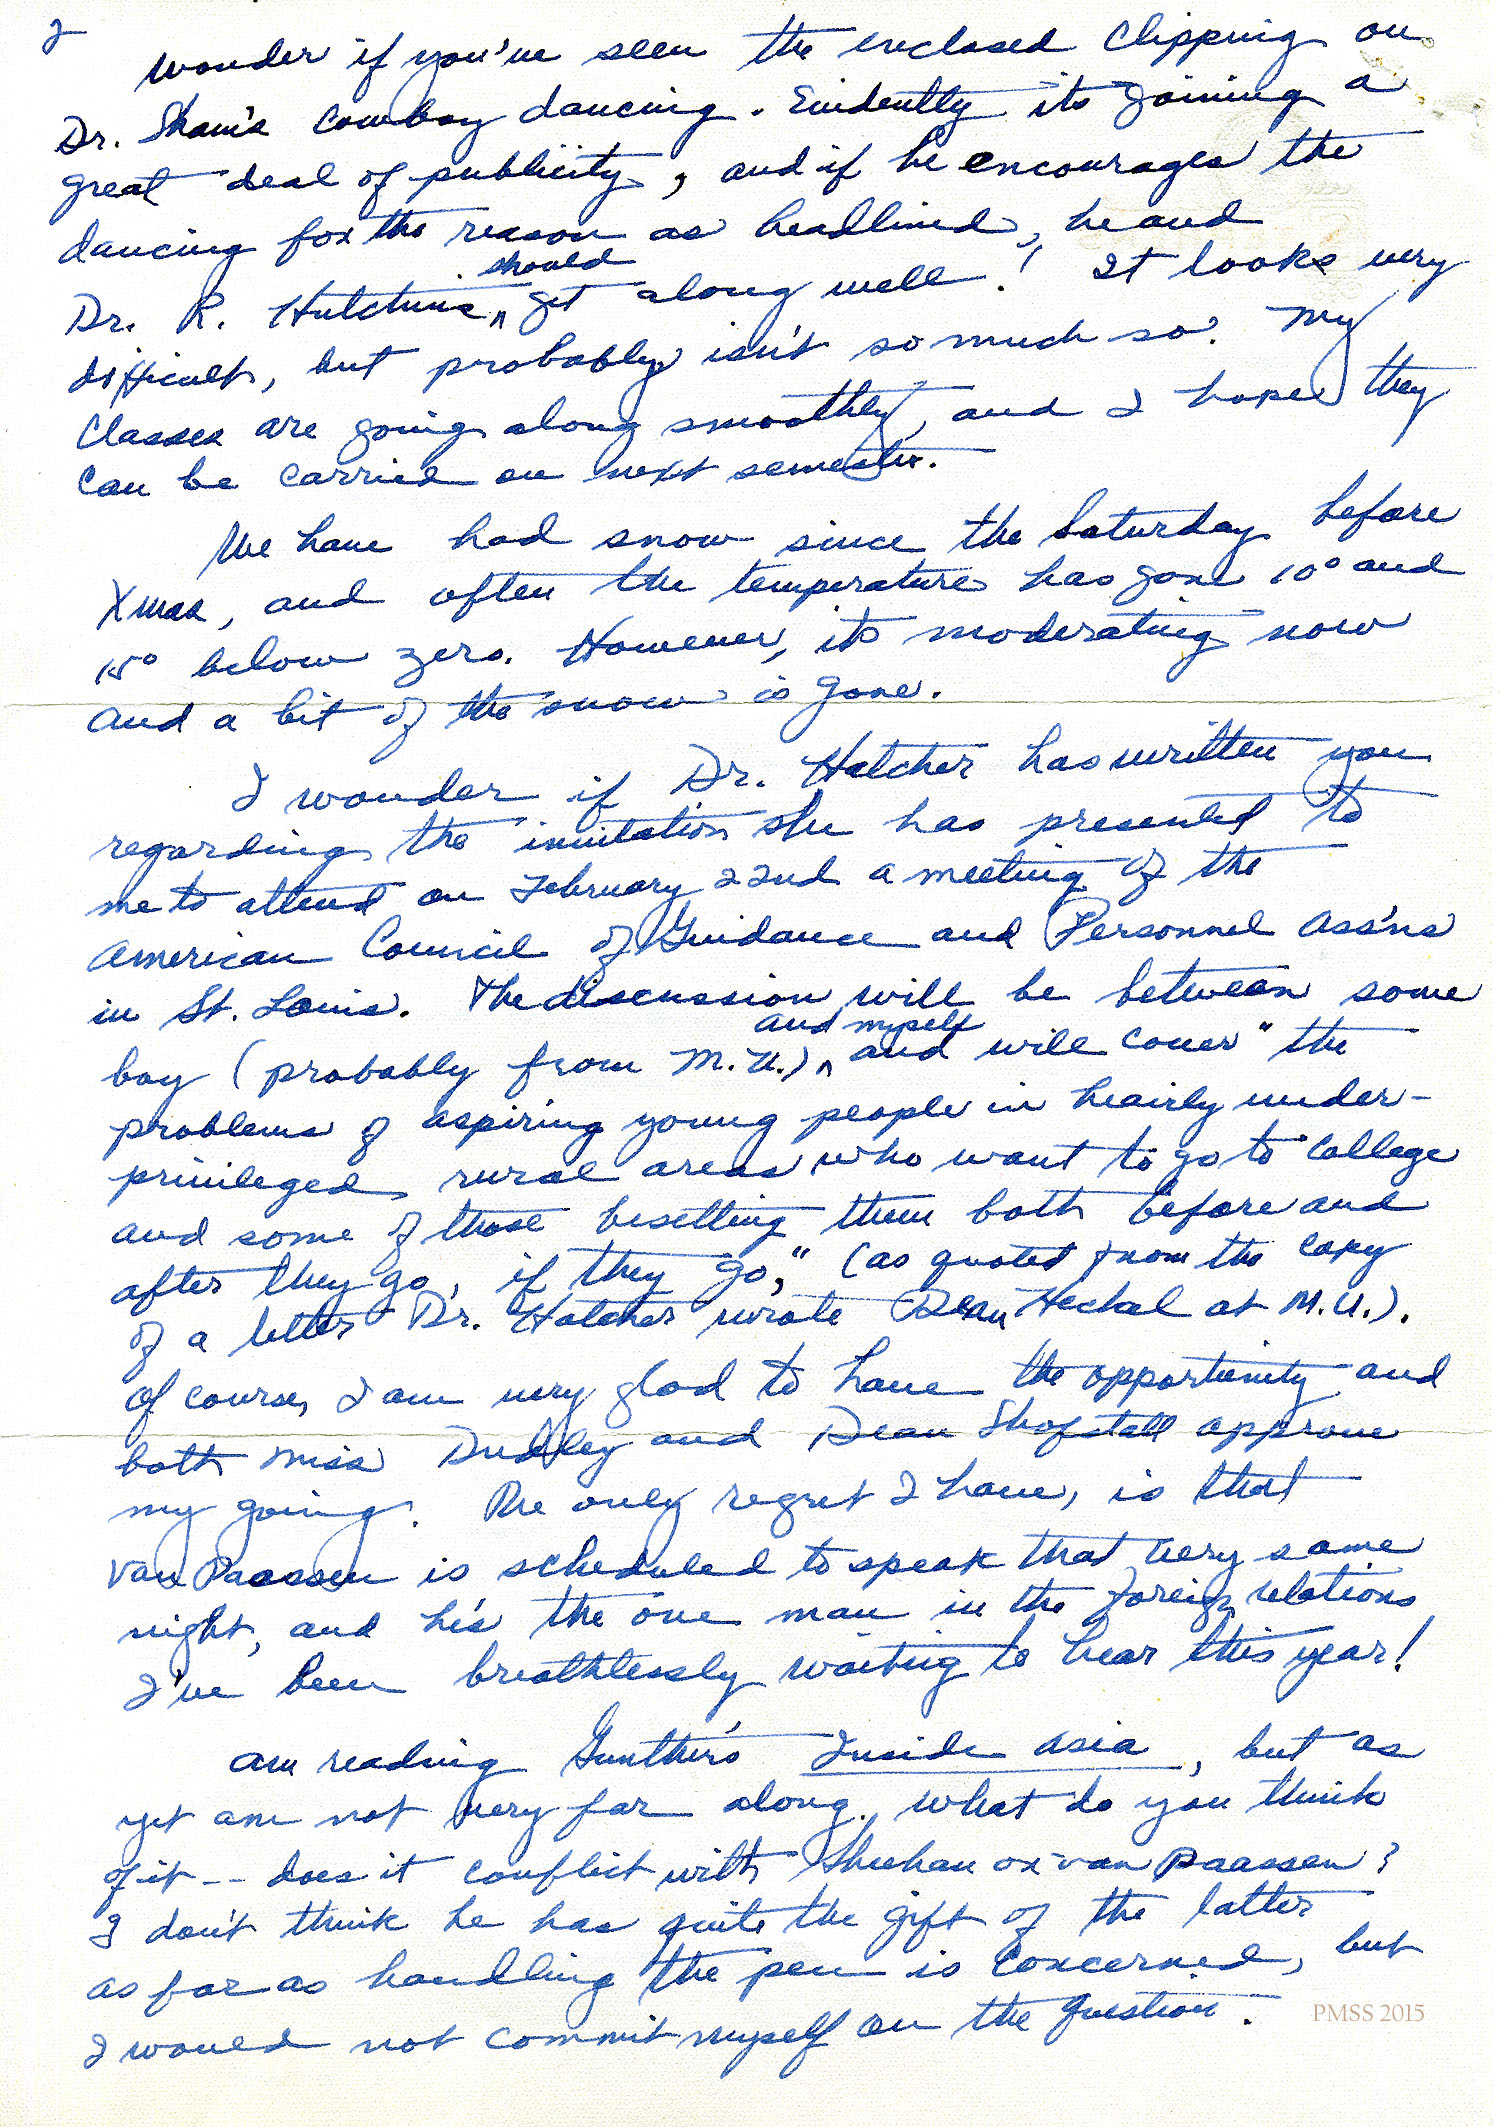 2
Wonder if you've seen the enclosed clipping on
Dr. Shaw's cowboy dancing. Evidently its gaining a
great deal of publicity, and if he encourages the
dancing for the reason as headlined, he and
should
Dr. R. Hutchins ^ get along well! It looks very
difficult, but probably isn't so much so. My
classes are going along smoothly, and I hope they
can be carried on next semester.
We have had snow since the Saturday before
Xmas, and often the temperature has gone 10° and
15° below zero. However, its moderating now
and a bit of the snow is gone.
I wonder if Dr. Hatcher has written you
regarding the invitation she has presented to
me to attend on February 22nd a meeting of the
American Council of Guidance and Personnel Ass'ns
in St. Louis. The discussion will be between some
and myself
boy (probably from M.U.) ^ and will cover "the
problems of aspiring young people in heavily under-
privileged rural areas who want to go to college
and some of those besetting them both before and
after they go, if they go," (as quoted from the copy
of a letter Dr. Hatcher wrote Dean Heckel at M.U.).
Of course, I am very glad to have the opportunity and
both Miss Dudley and Dean Shofstall approve
my going. The only regret I have, is that
van Paassen is scheduled to speak that very same
night, and he's the one man in the foreign relations
I've been breathlessly waiting to hear this year!
Am reading Gunther's Inside Asia, but as
yet am not very far along. What do you think
of it -- does it conflict with Sheehan or van Paassen?
I don't think he has quite the gift of the latter
as far as handling the pen is concerned, but
I would not commit myself on the question.
PMSS 2015